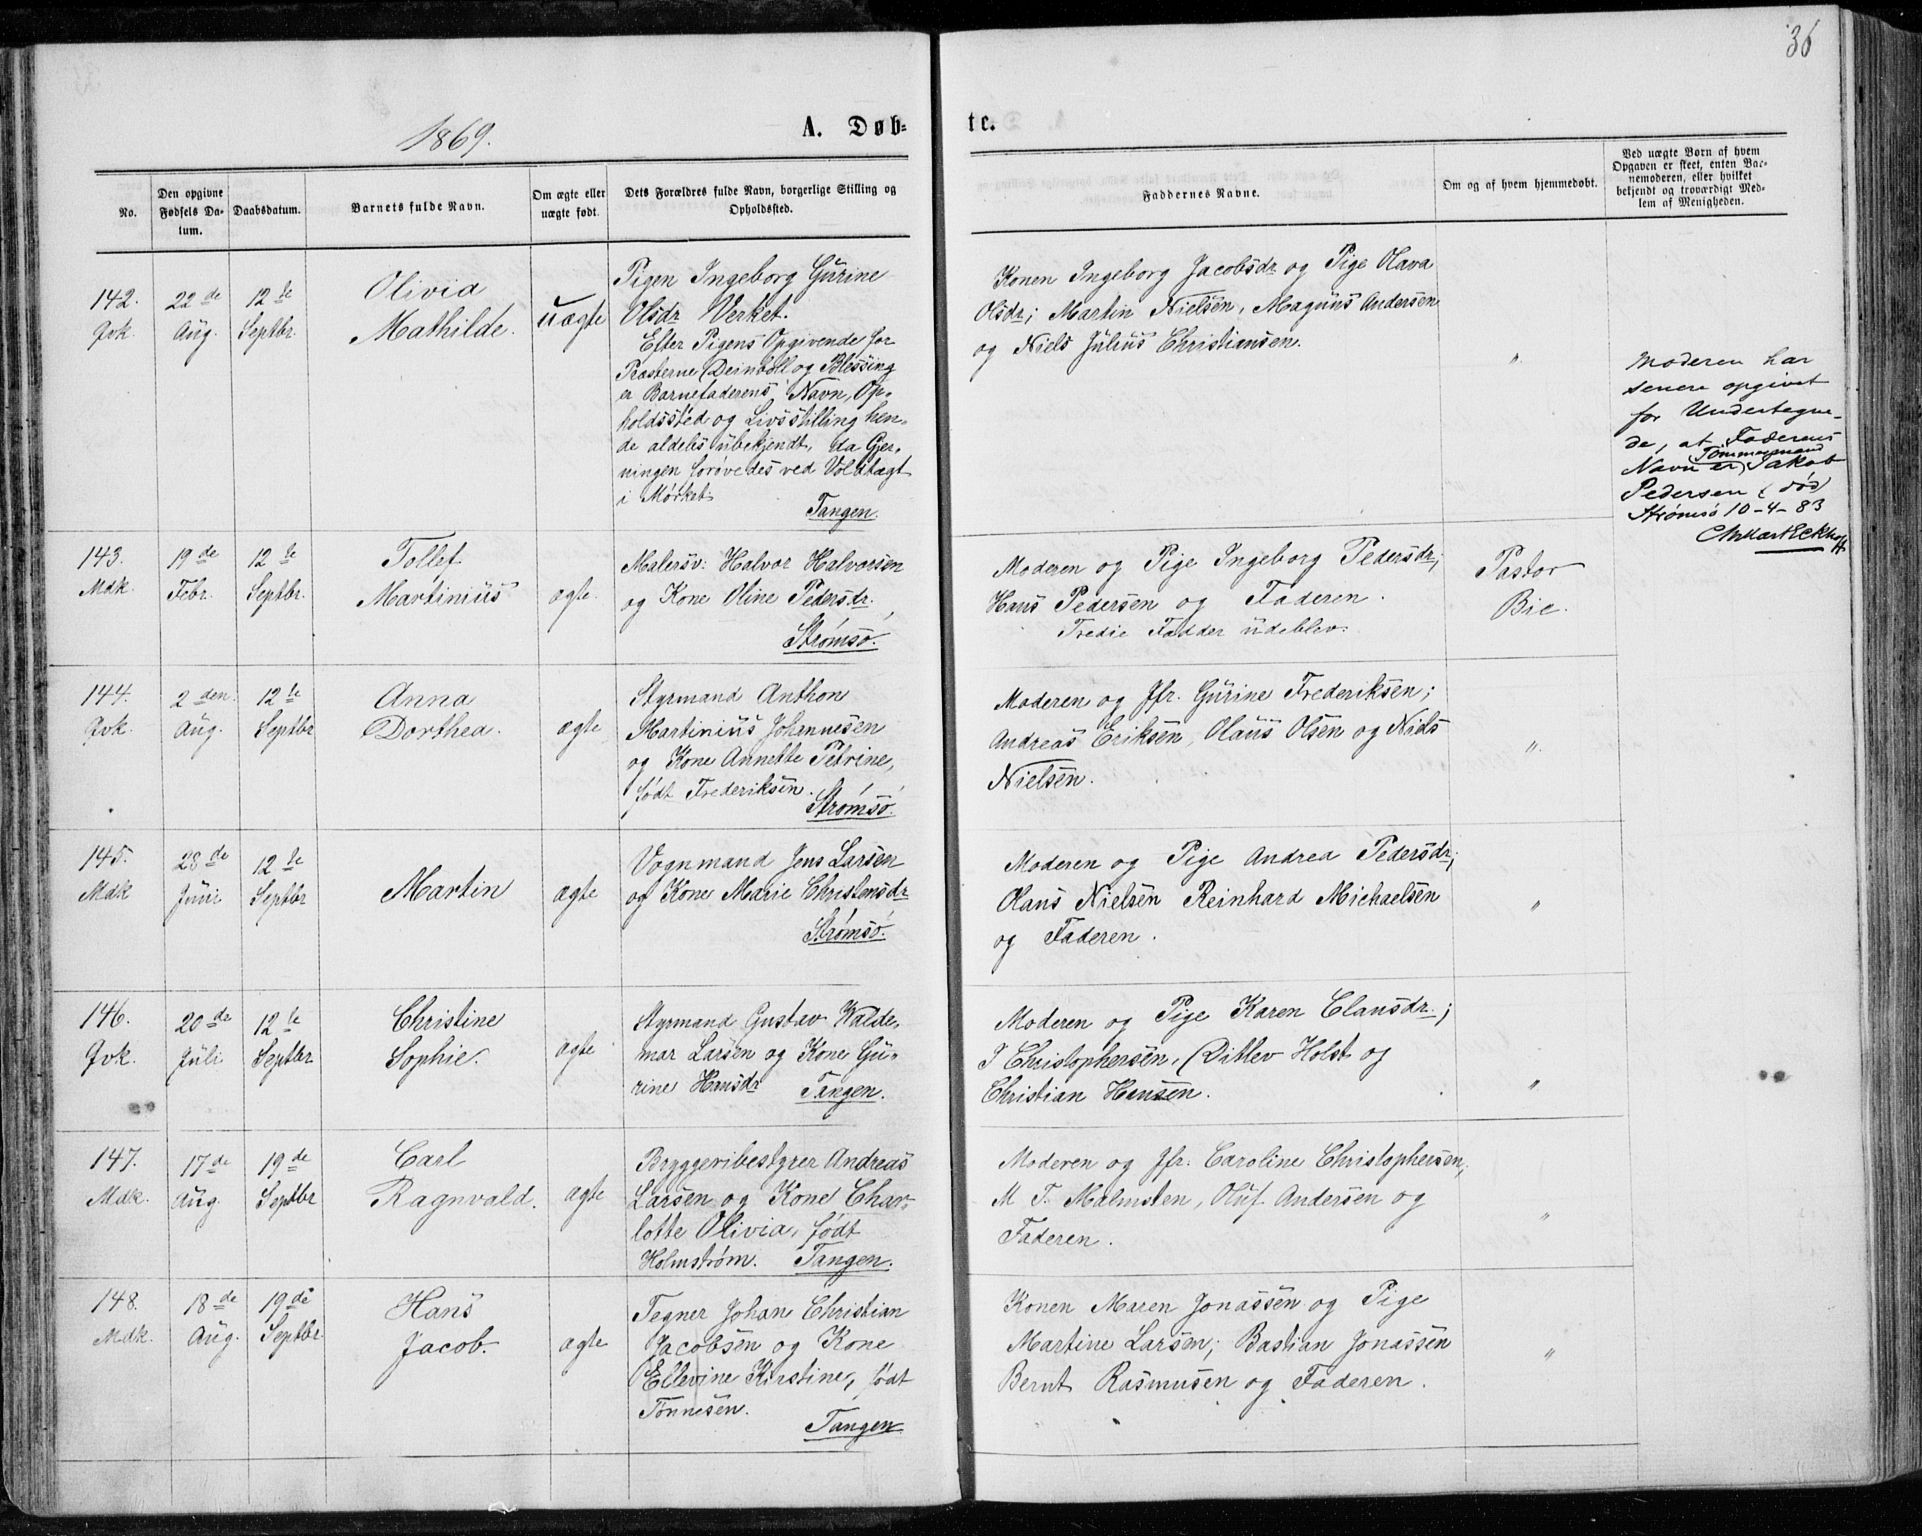 36
1869.
A. Døb-
te.
No.
Den opgivne Fødsels Da-
tum.
Daabsdatum.
Barnets fulde Navn.
Om ægte eller
uægte født.
Dets Forældres fulde Navn, borgerlige Stilling og
Opholdssted.
Faddernes Navne.
Om og af hvem hjemmedøbt.
Ved uægte Børn af hvem
Opgaven er skeet, enten Bar-
nemoderen, eller hvilket
bekjendt og troværdigt Med-
lem af Menigheden.
142.
Qvk.
22de
Aug.
12te
Septbr.
Olivia
Mathilde.
uægte
Pigen Ingeborg Gurine
Olsdr Verket.
Efter Pigens Opgivende for
Præsterne Deinboll og Blessing
er Barnefaderens Navn, Op-
holdssted og Livsstilling hen-
de aldeles ubekjendt, da Gjer-
ningen forøvedes ved Voldtægt
i Mørket.
Tangen.
Konen Ingeborg Jacobsdr og Pige Olava
Olsdr; Martin Nielsen, Magnus Andersen
og Niels Julius Christiansen.
"
Moderen har
senere opgivet
for Undertegne-
de, at Faderens
Tømmermand
Navn er Jakob
Pedersen (død)
Strømsø 10-4-83
143.
Mdk.
19de
Febr.
12te
Septbr.
Tollef
Martinius
ægte.
Malersv: Halvor Halvorsen
og Kone Oline Pedersdr.
Strømsø.
Moderen og Pige Ingeborg Pedersdr;
Hans Pedersen og Faderen.
Tredie Fadder udeblev.
Pastor
Bie.
144.
Qvk.
2den
Aug.
12te
Septbr
Anna
Dorthea.
ægte
Styrmand Anthon
Martinius Johannesen
og Kone Annette Petrine,
født Frederiksen.
Strømsø.
Moderen og Jfr. Gurine Frederiksen;
Andreas Eriksen, Olaus Olsen og Niels
Nielsen.
"
145.
Mdk
28de
Juni
12te
Septbr
Martin
ægte
Vognmand Jens Larsen
og Kone Marie Christensdr
Strømsø.
Moderen og Pige Andrea Pedersdr;
Olaus Nielsen Reinhard Michaelsen
og Faderen.
"
146.
Qvk.
20de
Juli
12te
Septbr
Christine
Sophie.
ægte
Styrmand Gustav Walde-
mar Larsen og Kone Gu-
rine Hansdr Tangen.
Moderen og Pige Karen Clausdr.;
J Christophersen, Ditlev Holst og
Christian Hansen.
"
147.
Mdk.
17de
Aug
19de
Septbr
Carl
Ragnvald.
ægte
Bryggeribestyrer Andreas
Larsen og Kone Char-
lotte Olivia, født
Holmstrøm. Tangen.
Moderen og Jfr. Caroline Christophersen,
M T. Malmsten, Oluf Andersen og
Faderen.
"
148.
Mdk.
18de
Aug.
19de
Septbr
Hans
Jacob.
ægte
Tegner Johan Christian
Jacobsen og Kone
Ellevine Kirstine, født
Tønnesen.
Tangen
Konen Maren Jonassen og Pige
Martine Larsen; Bastian Jonassen
Bernt Rasmusen og Faderen.
"